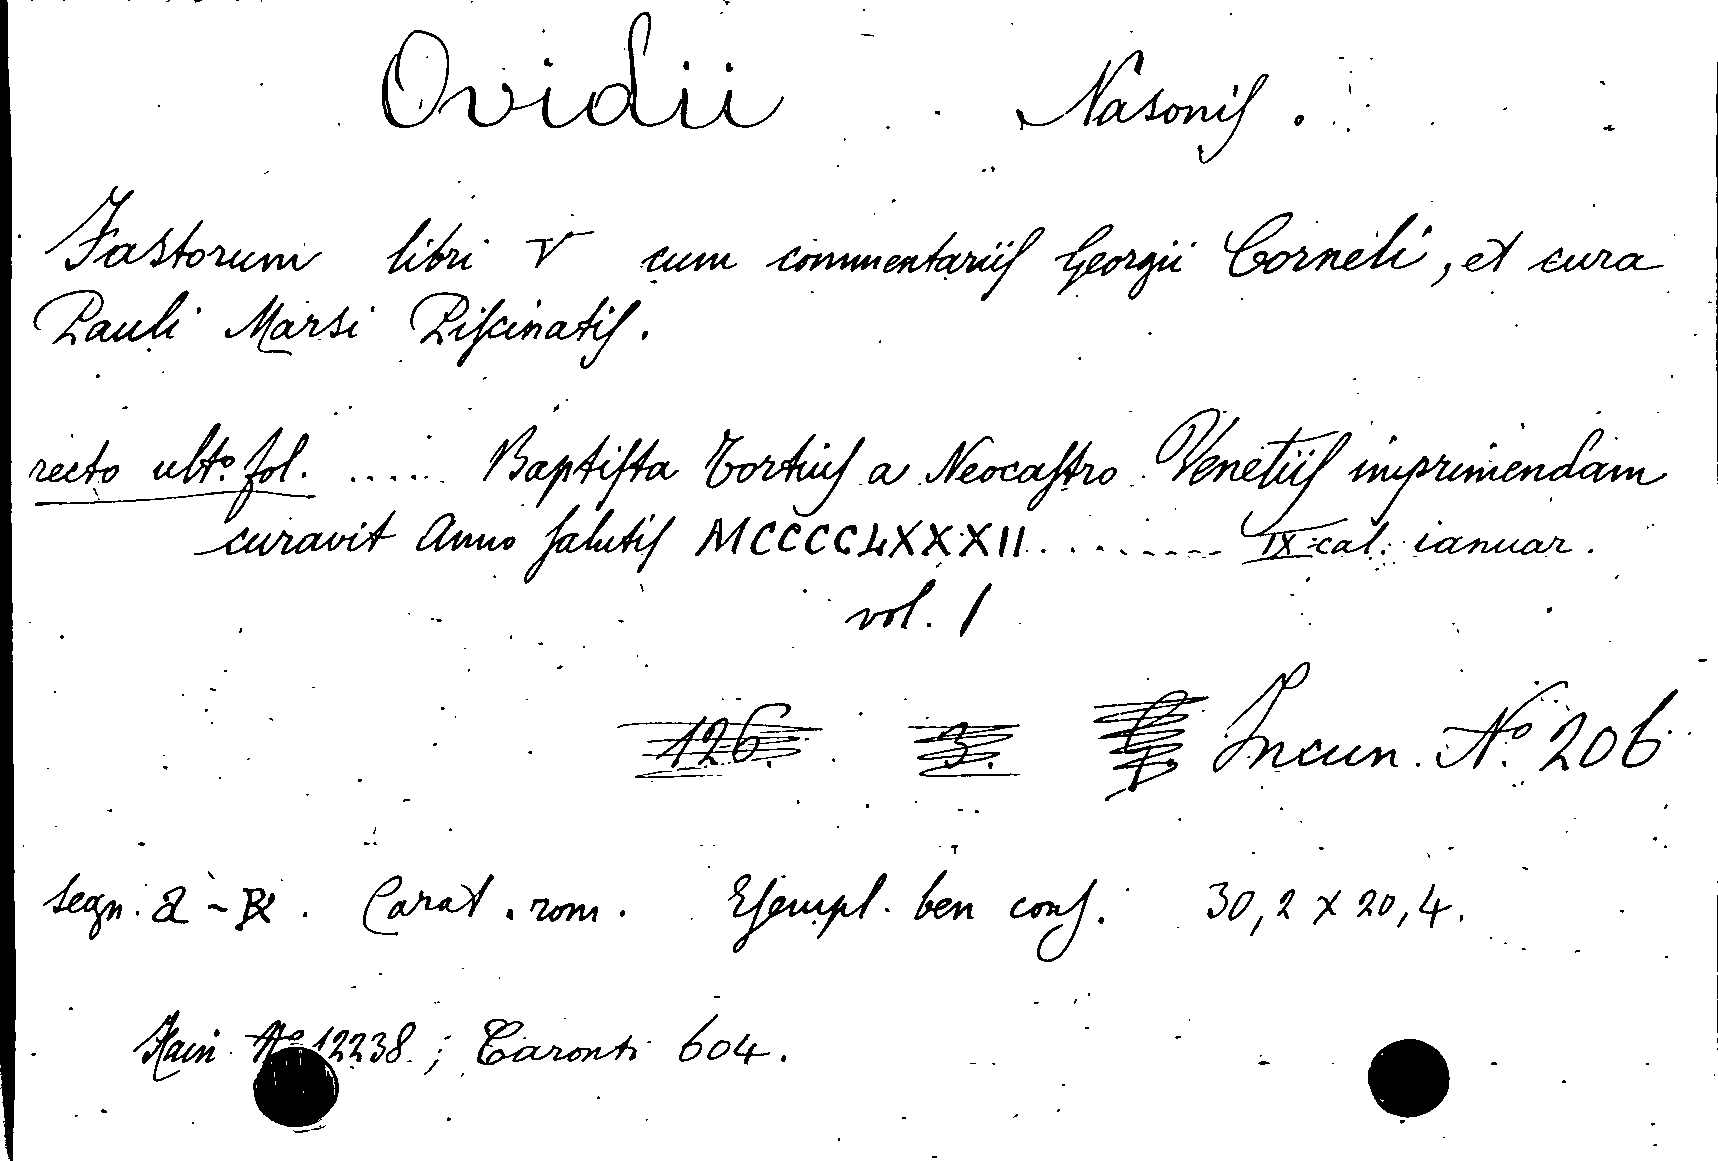 Ovidii Nasonis.
Fastorum libri V cum commentariis Georgii Corneli, et cura
Pauli Marsi Piscinatis.
recto ulto. fol. ..... Baptista Tortius a Neocastro Venetiis imprimendam
curavit Anno salutis MCCCCLXXXII ......... IX cal. ianuar.
vol. 1
126. 3. Incun. No. 206
segn. a - &. Carat. rom. Esempl. ben cons. 30,2 x 20,4.
Hain No 12238.; Caronti 604.